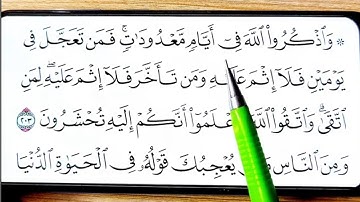 ۞ وَٱذْكُرُوا۟ ٱللَّهَ فِىٓ أَيَّامٍ مَّعْدُودَٰتٍ ۚ فَمَن تَعَجَّلَ فِى
يَوْمَيْنِ فَلَآ إِثْمَ عَلَيْهِ وَمَن تَأَخَّرَ فَلَآ إِثْمَ عَلَيْهِ ۚ لِمَنِ
ٱتَّقَىٰ ۗ وَٱتَّقُوا۟ ٱللَّهَ وَٱعْلَمُوٓا۟ أَنَّكُمْ إِلَيْهِ تُحْشَرُونَ ٢٠٣
وَمِنَ ٱلنَّاسِ يُعْجِبُكَ قَوْلُهُۥ فِى ٱلْحَيَوٰةِ ٱلدُّنْيَا